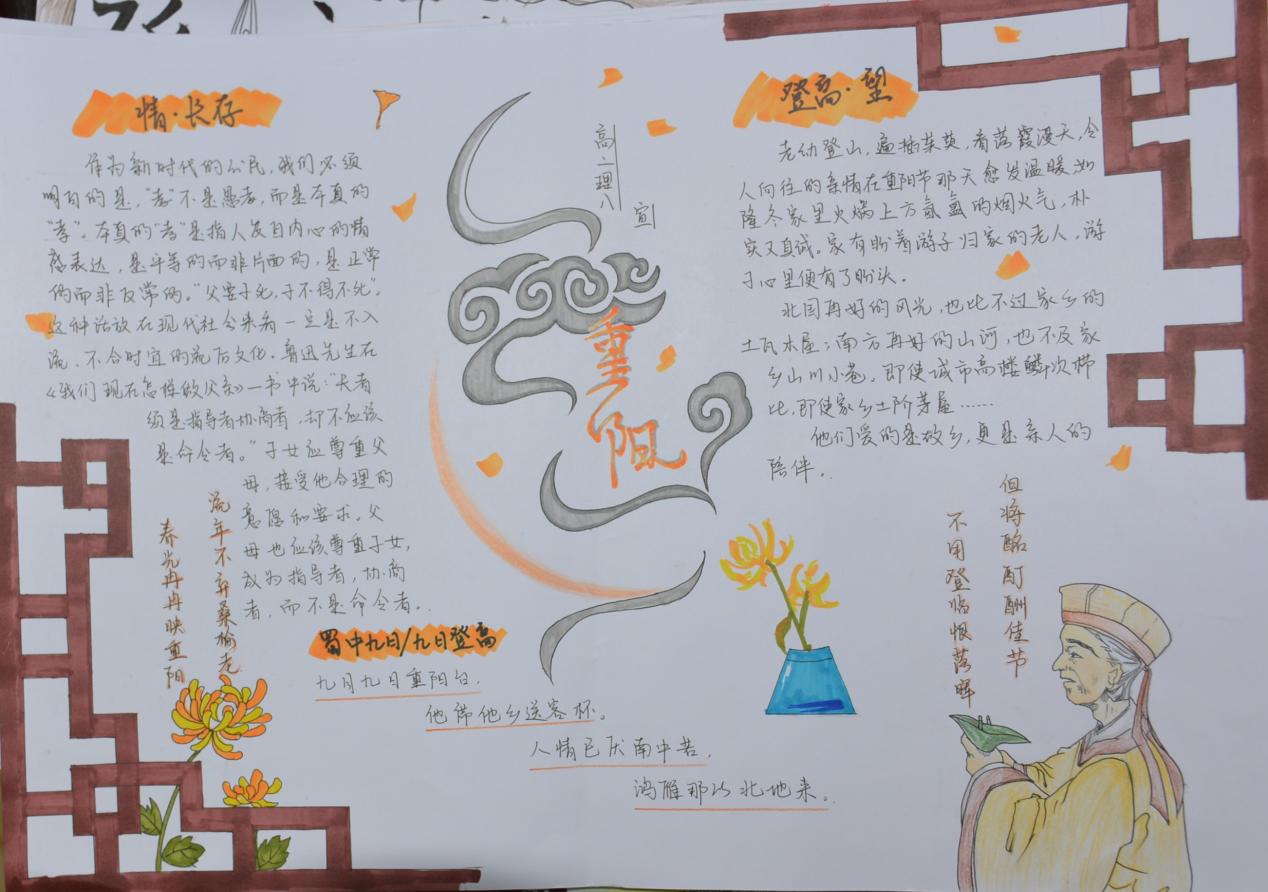 情·长存
作为新时代的公民,我们必须
明白的是,"孝"不是愚孝,而是本真的
"孝"。本真的"孝"是指人发自内心的情
感表达,是平等的而非片面的,是正常
的而非反常的。"父要子死,子不得不死"。
这种话放在现代社会来看一定是不入
流、不合时宜的落后文化。鲁迅先生在
《我们现在怎样做父亲》一书中说:"长者
须是指导者协商者,却不应该
是命令者。"子女应尊重父
母,接受他合理的
意愿和要求。父
母也应该尊重子女,
成为指导者,协商
者,而不是命令者。
流年不弃桑榆老
春光冉冉映重阳
高二理八
宣
重阳
登高·望
老幼登山,遍插茱萸,看落霞漫天,令
人向往的亲情在重阳节那天愈发温暖,如
隆冬家里火锅上方氤氲的烟火气,朴
实又真诚。家有盼着游子归家的老人,游
子心里便有了盼头。
北国再好的风光,也比不过家乡的
土瓦木屋;南方再好的山河,也不及家
乡山川小巷。即使城市高楼鳞次栉
比,即使家乡土阶茅屋……
他们爱的是故乡,更是亲人的
陪伴。
但将酩酊酬佳节
不用登临恨落晖
蜀中九日/九日登高
九月九日重阳台,
他席他乡送客杯。
人情已厌南中苦,
鸿雁那以北地来。